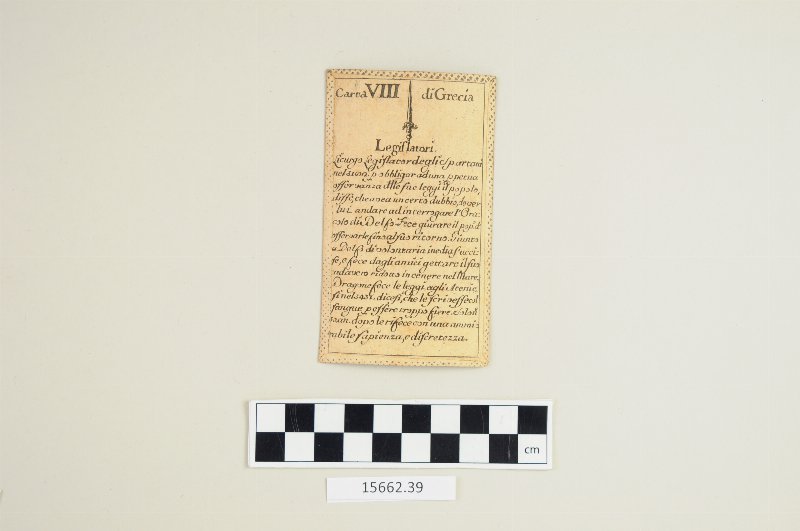 Carta VIII di Grecia
Legislatori.
Licurgo Legislator degli Spartani
nel suo p obbligar ad una ppetua
osservanza delle sue leggi il popolo,
disse, che avea un certo dubbio, dover
lui andare ad interrogare l'Ora
colo di Delfo. Fece giurare il
osservarle fino al suo ritorno. Giunto
a Delfo di volontaria inedia s'ucci
se, e fece dagli amici gettare il suo
cadavero ridotto in cenere nel Mare.
Dragme fece le leggi agli Atenie
si nel dicesi, che le scrivesse col
sangue, p essere troppo fiere. Solon
dopo le rifece con una ammi
rabile sapienza, e discretezza.
cm
15662.39